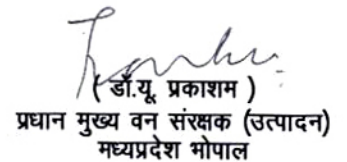 ( डॉ.यू. प्रकाशम )
प्रधान मुख्य वन संरक्षक (उत्पादन)
मध्यप्रदेश भोपाल